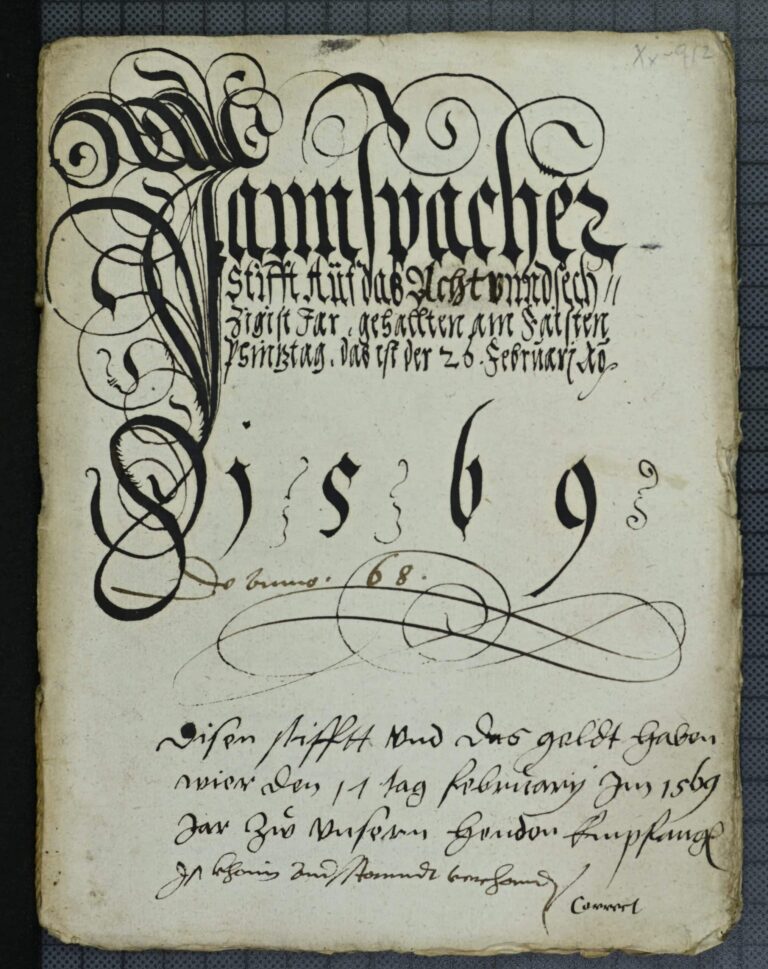 Xx-912
Rannspacher
Stifft Auf das Acht vnndsech//
zigist Jar, gehallten am Faisten
Pfintztag, das ist der 26. Februarj Ao
1569
De Anno. 68.
Disen stifftt Vnd das geldt haben
wier den 14 tag february Im 1569
Jar Zw Vnsern henden Empfang
Ist khain
Correct